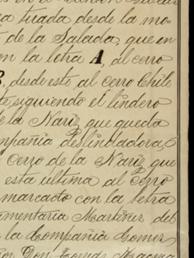 tirada desde la mo-
de la Salada, que en
con la letra A, al cerro
B, desde este al cerro Chile
siguiendo el lindero
de la Nariz, que queda
compañía deslindadora,
Cerro de la Nariz, que
esta última al Cerro
marcado con la letra
amentaria Martínez del
la Compañía Comer-